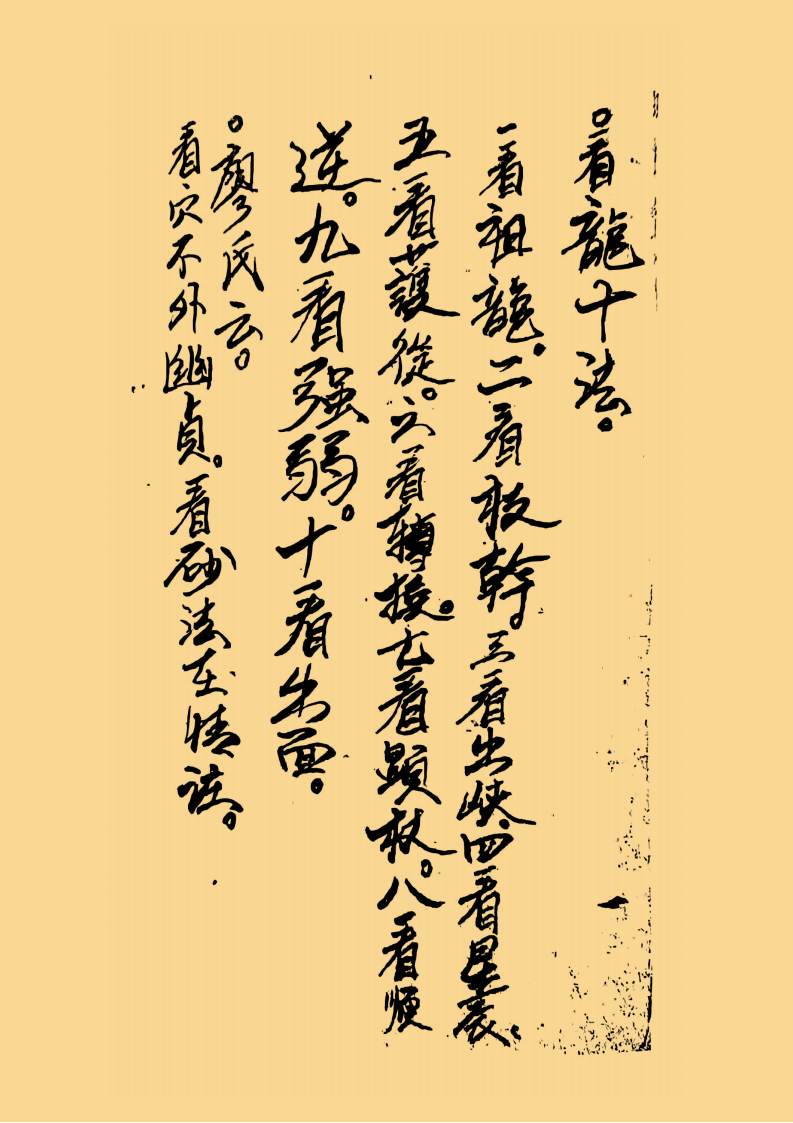 。看龍十法。
一看祖龍。二看枝幹。三看出峽。四看星辰。
五看護從。六看轉接。七看顕杖。八看順
逆。九看強弱。十看出面。
。廖氏云。
看穴不外幽貞。看砂法至情該。
一